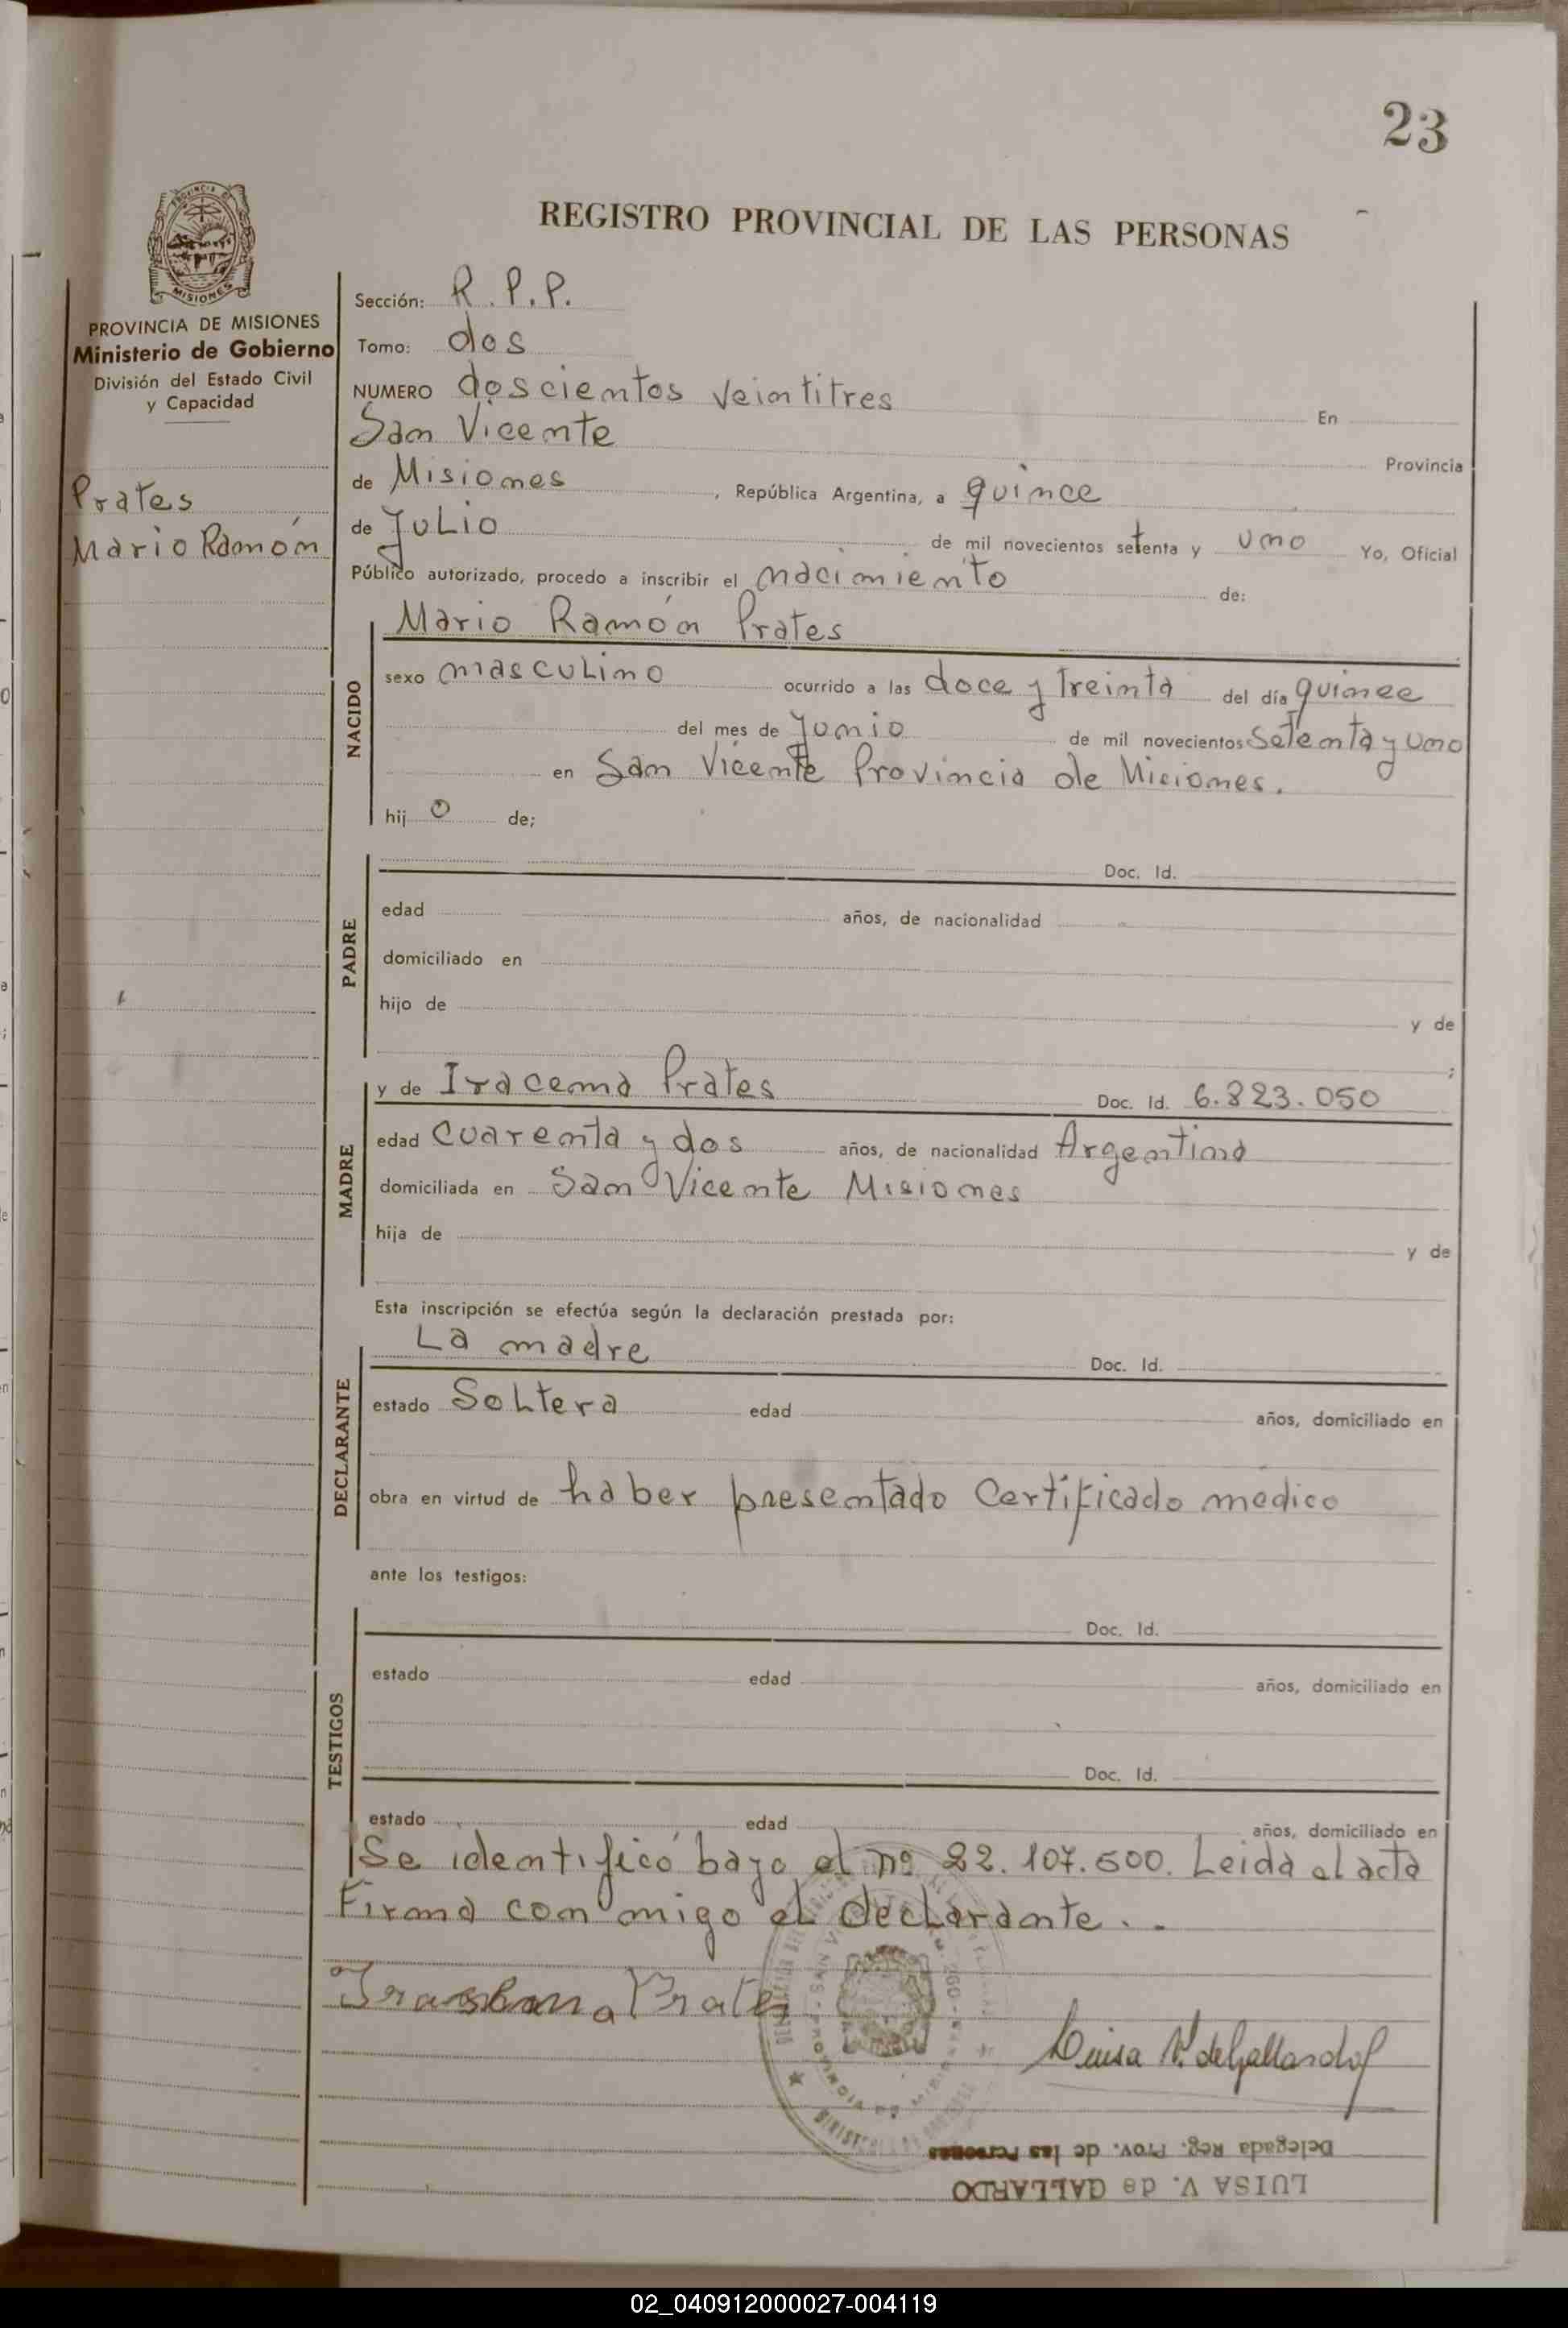 23
REGISTRO PROVINCIAL DE LAS PERSONAS
MISIONES
PROVINCIA DE MISIONES
Ministerio de Gobierno
División del Estado Civil
y Capacidad
Prates
Mario Ramón
Sección: R.P.P.
Tomo: dos
NUMERO doscientos veintitres En
San Vicente Provincia
de Misiones, República Argentina, a quince
de Julio de mil novecientos setenta y uno Yo, Oficial
Público autorizado, procedo a inscribir el nacimiento de:
NACIDO
Mario Ramón Prates
sexo masculino ocurrido a las doce y treinta del día quince
del mes de Junio de mil novecientos setenta y uno
en San Vicente Provincia de Misiones.
hij o de;
PADRE
Doc. Id.
edad años, de nacionalidad
domiciliado en
hijo de y de
;
MADRE
y de Iracema Prates Doc. Id. 6.823.050
edad cuarenta y dos años, de nacionalidad Argentina
domiciliada en San Vicente Misiones
hija de y de
Esta inscripción se efectúa según la declaración prestada por:
DECLARANTE
La madre Doc. Id.
estado Soltera edad años, domiciliado en
obra en virtud de haber presentado Certificado medico
ante los testigos:
TESTIGOS
Doc. Id.
estado edad años, domiciliado en
Doc. Id.
estado edad años, domiciliado en
Se identificó bajo el nº 22.107.500. Leida el acta
Firma con migo el declarante..
Prates
Luisa V. de Gallardo
Delegada Reg. Prov. de las Personas
LUISA V. de GALLARDO
02_040912000027-004119